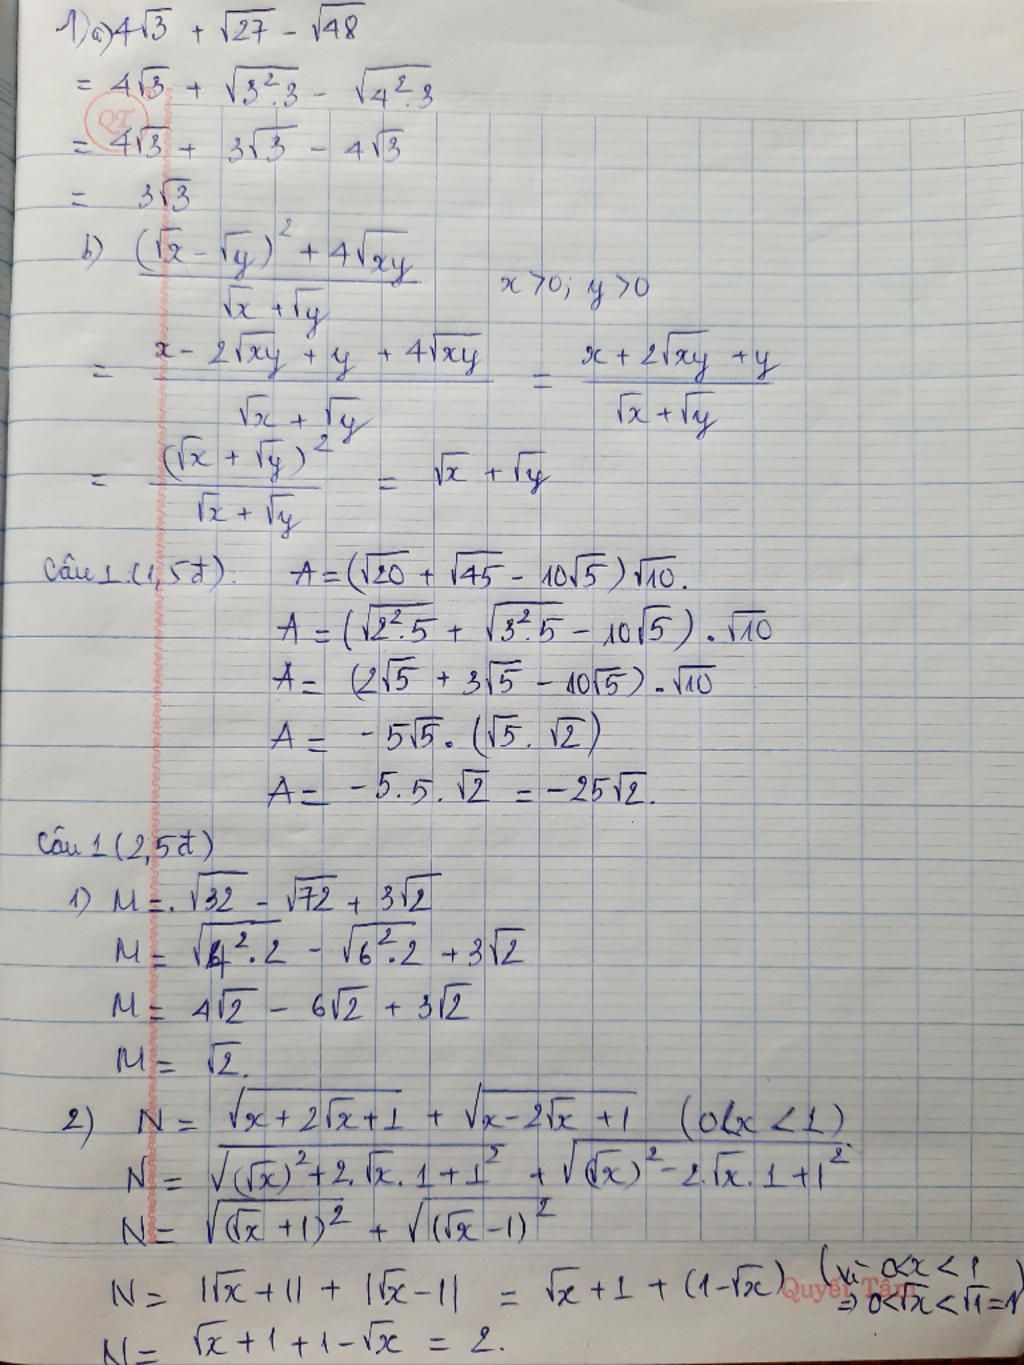 1) a) 4√3 + √27 - √48
= 4√3 + √(3².3) - √(4².3)
QT
= 4√3 + 3√3 - 4√3
= 3√3
b) ((√x - √y)² + 4√xy) / (√x + √y)   x > 0; y > 0
= (x - 2√xy + y + 4√xy) / (√x + √y) = (x + 2√xy + y) / (√x + √y)
= (√x + √y)² / (√x + √y) = √x + √y
Câu 1.(1,5đ). A = (√20 + √45 - 10√5)√10.
A = (√(2².5) + √(3².5) - 10√5).√10
A = (2√5 + 3√5 - 10√5).√10
A = -5√5.(√5.√2)
A = -5.5.√2 = -25√2.
Câu 1 (2,5đ)
1) M = √32 - √72 + 3√2
M = √(4².2) - √(6².2) + 3√2
M = 4√2 - 6√2 + 3√2
M = √2.
2) N = √(x + 2√x + 1) + √(x - 2√x + 1) (0 < x < 1)
N = √((√x)² + 2.√x.1 + 1²) + √((√x)² - 2.√x.1 + 1²)
N = √(√x + 1)² + √(√x - 1)²
N = |√x + 1| + |√x - 1| = √x + 1 + (1 - √x) (vì 0 < x < 1
⇒ 0 < √x < √1 = 1)
Quyết Tâm
N = √x + 1 + 1 - √x = 2.